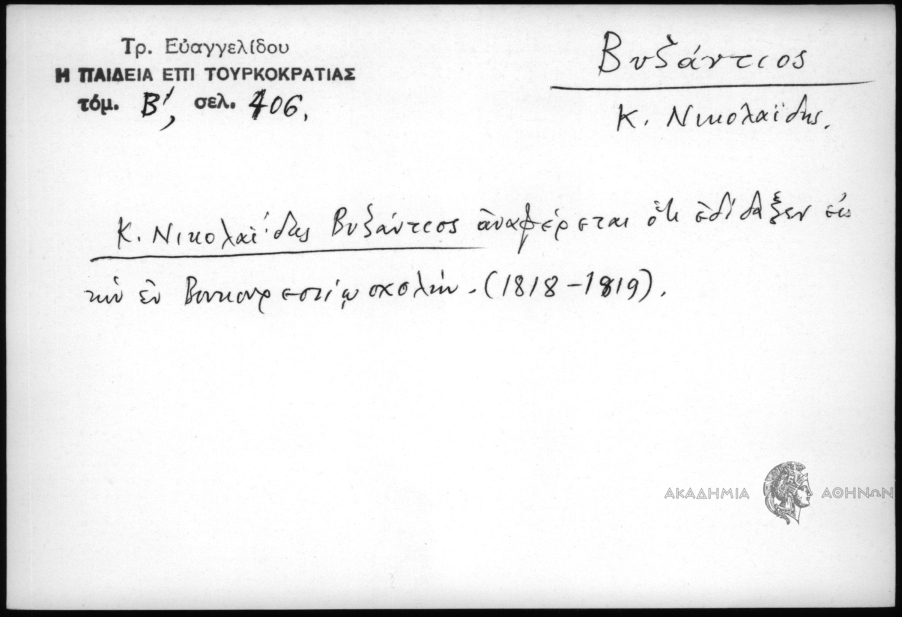 Τρ. Εὐαγγελίδου
Η ΠΑΙΔΕΙΑ ΕΠΙ ΤΟΥΡΚΟΚΡΑΤΙΑΣ
τόμ. Β', σελ. 406.
Βυζάντιος
Κ. Νικολαΐδης.
Κ. Νικολαΐδης Βυζάντιος ἀναφέρεται ὅτι ἐδίδαξεν εἰς
τὴν ἐν Βουκουρεστίῳ σχολήν. (1818-1819).
ΑΚΑΔΗΜΙΑ ΑΘΗΝΩΝ